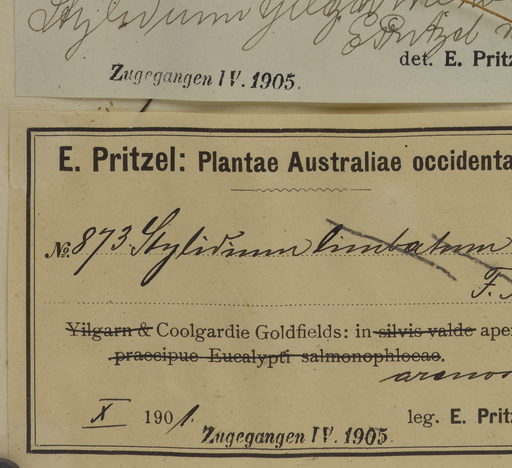 Stylidium Yilgarnense
E Pritzel n
det. E. Pritz
Zugegangen IV. 1905.
E. Pritzel: Plantae Australiae occidenta
№ 873. Stylidium limbatum
F.
Yilgarn & Coolgardie Goldfields: in silvis valde ape
praecipue Eucalypti salmonophloeae.
arenos
X 1901.
leg. E. Pritz
Zugegangen IV. 1905